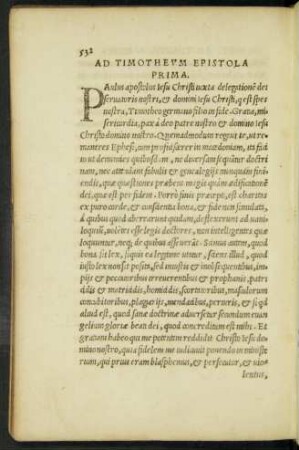 532
AD TIMOTHEVM EPISTOLA
PRIMA.
PAulus apostolus Iesu Christi iuxta delegationē dei
seruatoris nostri, & domini Iesu Christi, q est spes
nostra, Timotheo germano filio in fide. Gratia, mi
sericordia, pax à deo patre nostro & domino Iesu
Christo domino nostro. Quemadmodum rogaui te, ut re-
maneres Ephesi, cum proficiscerer in macedoniam, ita faci
to ut denuncies quibusdam, ne diuersam sequātur doctri
nam, nec attēdant fabulis & genealogijs nunquam fini-
endis, quæ quæstiones præbent magis quàm ædificationē
dei, quæ est per fidem. Porrò finis præcepti, est charitas
ex puro corde, & conscientia bona, & fide non simulata,
à quibus quod aberrarunt quidam, deflexerunt ad uani-
loquiū, uolētes esse legis doctores, non intelligentes quæ
loquuntur, neq; de quibus asseuerāt. Scimus autem, quod
bona sit lex, si quis ea legitime utatur, sciens illud, quod
iusto lex non sit posita, sed iniustis & inobsequentibus, im
pijs & peccatoribus irreuerentibus & prophanis, patri
cidis & matricidis, homicidis, scortatoribus, masculorum
concubitoribus, plagiarijs, mendacibus, periuris, & si qd
aliud est, quod sanæ doctrinæ aduersetur secundum euan
gelium gloriæ beati dei, quod concreditum est mihi. Et
gratiam habeo qui me potentem reddidit Christo Iesu do
mino nostro, quia fidelem me iudicauit ponendo in ministe
rium, qui prius eram blasphemus, & persecutor, & uio-
lentus,